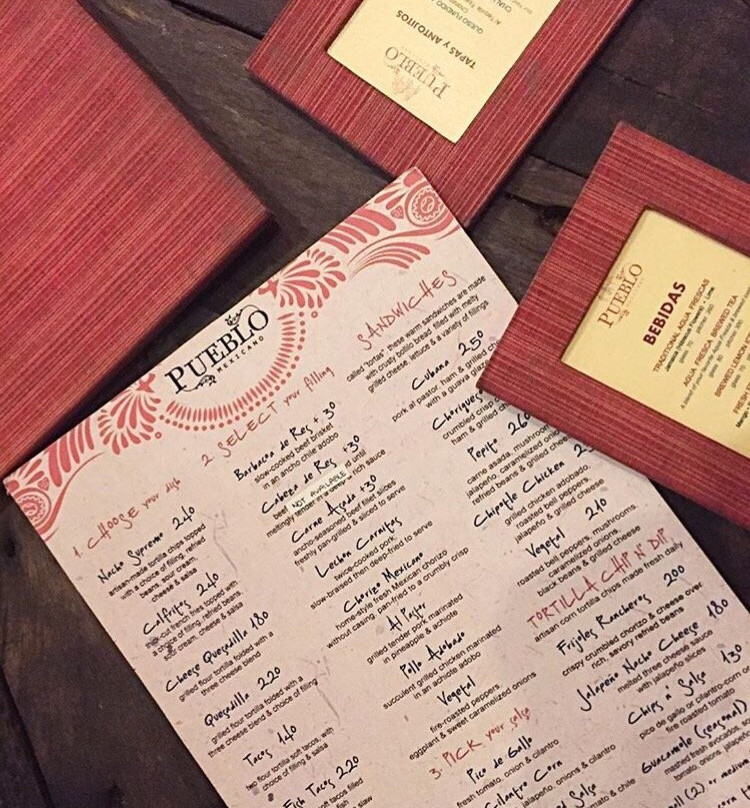 PUEBLO
MEXICANO
1. CHOOSE your dish
Nacho Supremo 240
artisan-made tortilla chips topped
with a choice of filling, refried
beans, sour cream,
cheese & salsa
Calfritos 240
thick-cut french fries topped with
a choice of filling, refried beans,
sour cream, cheese & salsa
Cheese Quesadilla 180
grilled flour tortilla folded with a
three cheese blend
Quesadilla 220
grilled flour tortilla folded with a
three cheese blend & choice of filling
Tacos 140
two flour tortilla soft tacos, with
choice of filling & salsa
Fish Tacos 220
soft tacos filled
2. SELECT your filling
Barbacoa de Res + 30
slow-cooked beef brisket
in an ancho chile adobo
Cabeza de Res +30
beef NOT AVAILABLE until
meltingly tender in a rich sauce
Carne Asada +30
ancho-seasoned beef fillet slices
freshly pan-grilled & sliced to serve
Lechon Carnitas
twice-cooked pork,
slow-braised then deep-fried to serve
Chorizo Mexicano
home-style fresh Mexican chorizo
without casing, pan-fried to a crumbly crisp
Al Pastor
grilled tender pork marinated
in pineapple & achiote
Pollo Adobado
succulent grilled chicken marinated
in an achiote adobo
Vegetal
fire-roasted peppers,
eggplant & sweet caramelized onions
3. PICK your salsa
Pico de Gallo
fresh tomato, onion & cilantro
Cilantro Corn
jalapeño, onions & cilantro
Salsa
tomato & chile
SANDWICHES
called "tortas" these warm sandwiches are made
with crusty bolillo bread, filled with melty
grilled cheese, lettuce & a variety of fillings
Cubana 250
pork al pastor, ham & grilled
with a guava glaze
crumbled crisp
ham & grilled
Pepito 260
carne asada, mushroom
jalapeño, caramelized
refried beans & grilled cheese
Chipotle Chicken
grilled chicken adobado,
roasted bell peppers,
jalapeño & grilled cheese
Vegetal 240
roasted bell peppers, mushrooms,
caramelized onions,
black beans & grilled cheese
TORTILLA CHIP N DIP
artisan corn tortilla chips made fresh daily
Frijoles Rancheros 200
crispy crumbled chorizo & cheese over
rich, savory refried beans
Jalapeño Nacho Cheese 180
melted three cheese sauce
with jalapeño slices
Chips n' Salsa 130
pico de gallo or cilantro-corn or
fire roasted tomato
Guacamole (seasonal)
mashed fresh avocados,
tomato, onions, jalapeño
(2) or medium
PUEBLO
TAPAS Y ANTOJITOS
QUESO FUNDIDO
PUEBLO
BEBIDAS
TRADITIONAL AGUA FRESCAS
AGUA FRESCA BREWED TEA